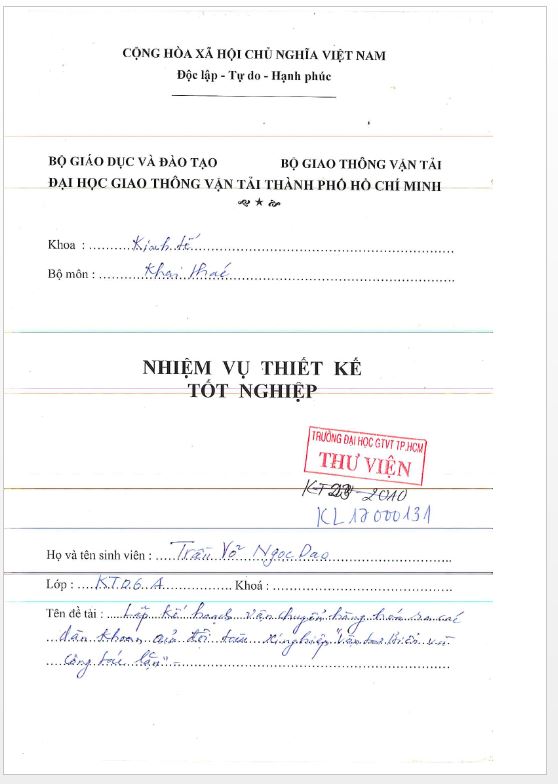 CỘNG HÒA XÃ HỘI CHỦ NGHĨA VIỆT NAM
Độc lập - Tự do - Hạnh phúc
BỘ GIÁO DỤC VÀ ĐÀO TẠO BỘ GIAO THÔNG VẬN TẢI
ĐẠI HỌC GIAO THÔNG VẬN TẢI THÀNH PHỐ HỒ CHÍ MINH
Khoa : Kinh tế
Bộ môn : Khai thác
NHIỆM VỤ THIẾT KẾ
TỐT NGHIỆP
TRƯỜNG ĐẠI HỌC GTVT TP.HCM
THƯ VIỆN
KT 23 - 2010
KL17000131
Họ và tên sinh viên : Trần Võ Ngọc Dao
Lớp : KT06A Khoá :
Tên đề tài : Lập kế hoạch vận chuyển hàng hóa ra các
dàn khoan của đội tàu xí nghiệp "Vận tải biển và
công tác lặn"